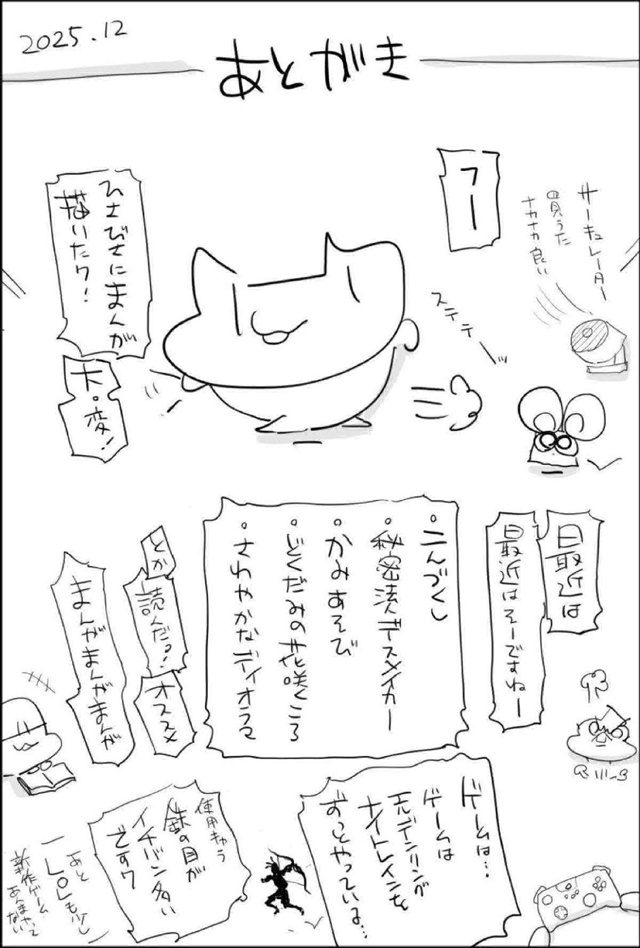 2025.12
あとがき
フー
サーキュレーター
買うた
ナカナカ良い
ステテーッ
ひさびさにまんが
描いたワ!
大。変!
最近は
最近はそーですねー
・こんづくし
・秘密法デスメイカー
・かみあそび
・どくだみの花咲くころ
・さわやかなディオラマ
とか
読んだっ!
オススメ
まんがまんがまんが
ゲームは…
ゲームは
エルデンリングが
ナイトレインを
ずっとやっているよ…
使用キャラ
鉄の目が
イチバン多い
ですワ
あと
LOLも少し
新作ゲーム
あんまやって
ない